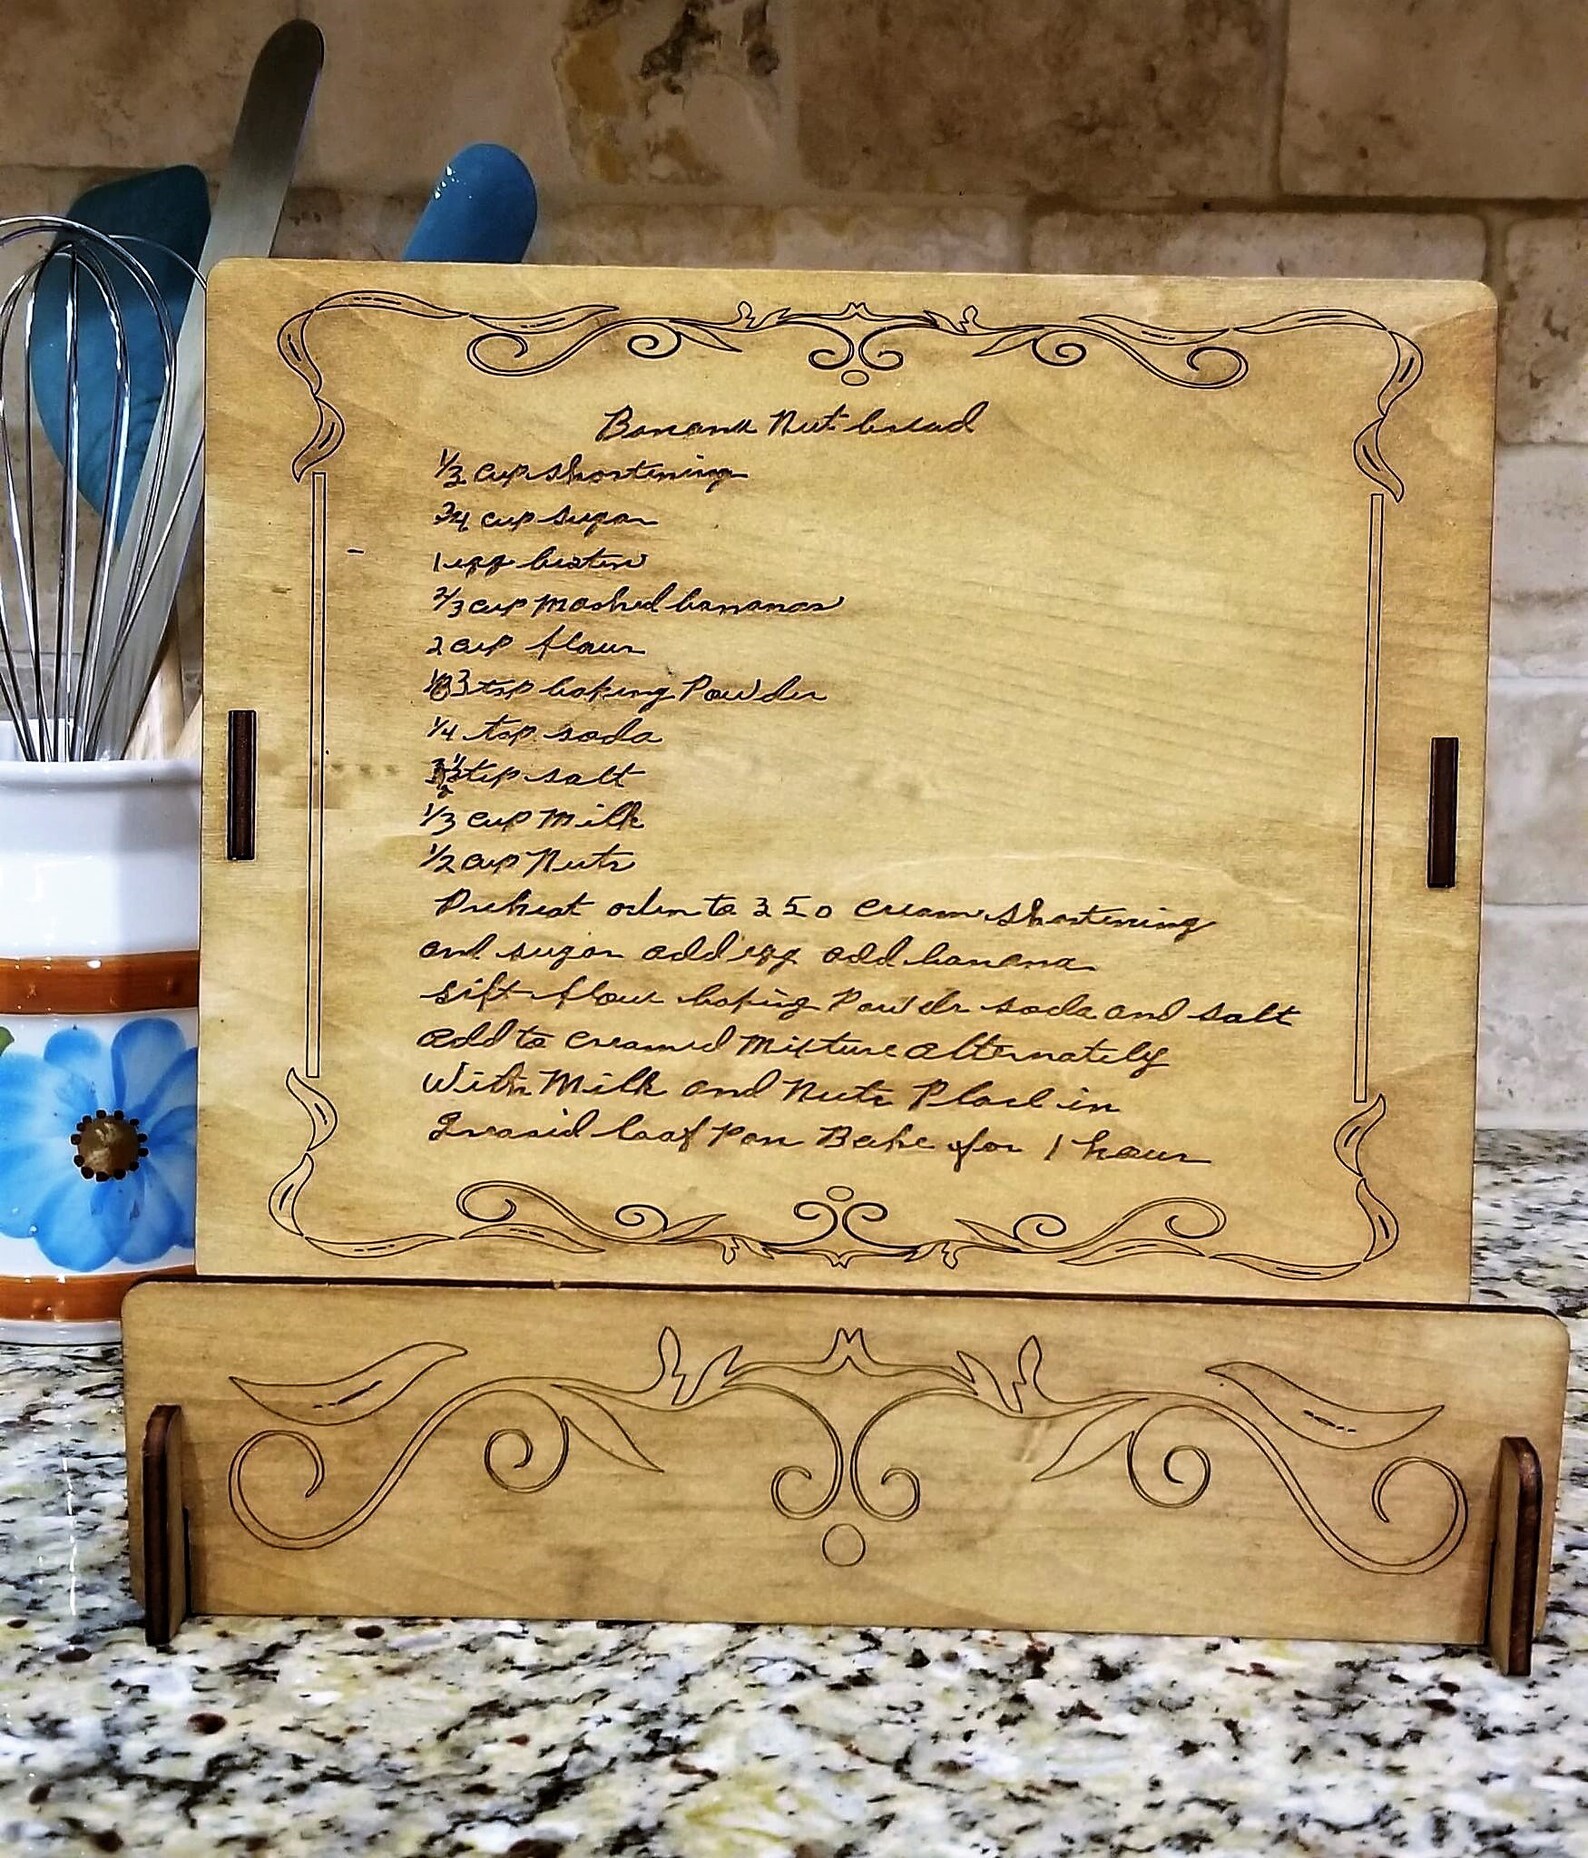 Banana Nut bread
cup shortening
3/4 cup sugar
1 egg beaten
2/3 cup Mashed bananas
2 cup flour
3 tsp baking Powder
1/4 tsp soda
1/2 tsp salt
1/3 cup Milk
1/2 cup Nuts
Preheat oven to 350 Cream shortening
and sugar add egg add banana
sift flour baking Powder soda and salt
add to Creamed Mixture alternately
With Milk and Nuts Place in
Greased loaf Pan Bake for 1 hour